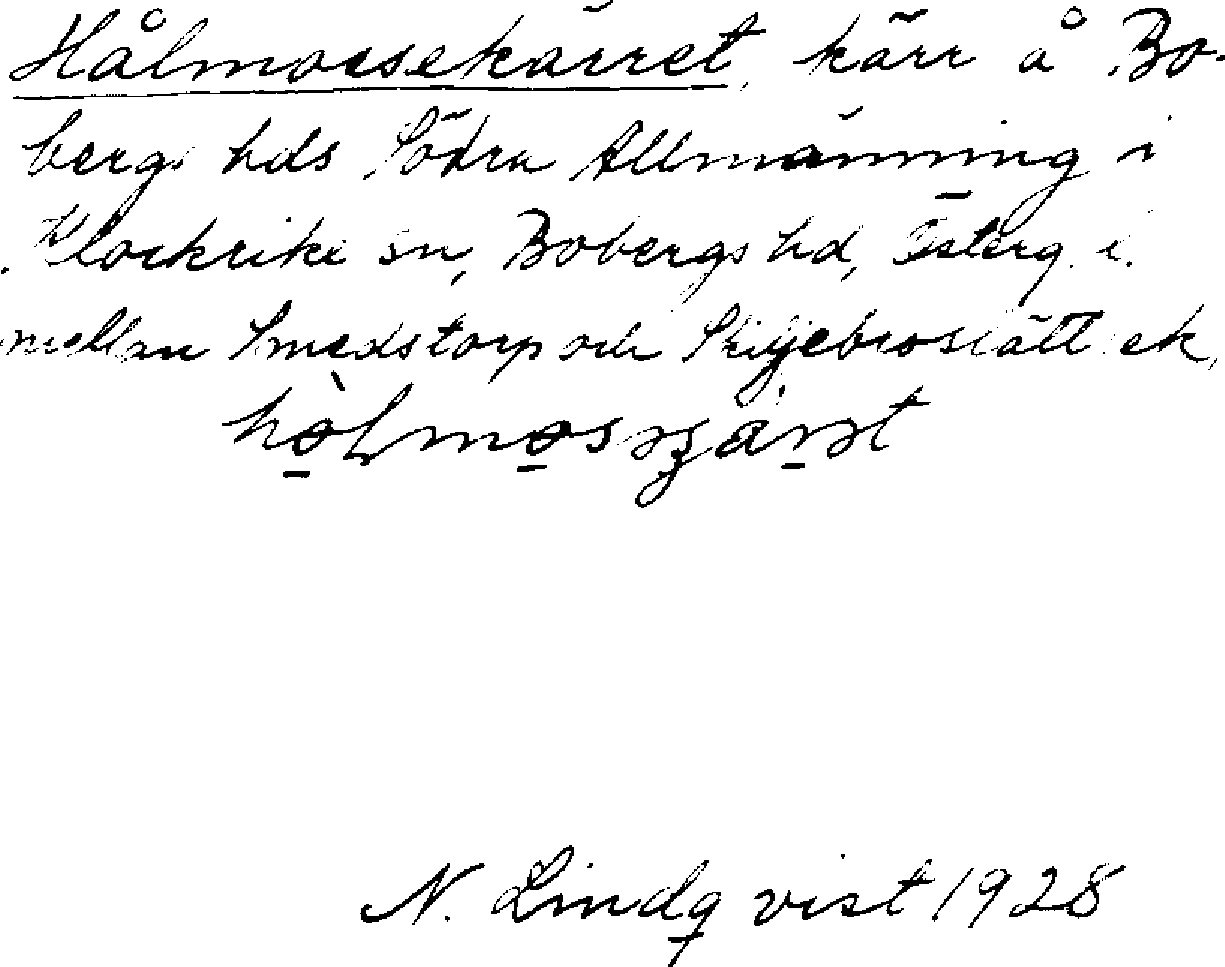 Hålmossekärret, kärr å Bo-
bergs hds Södra Allmänning i
Klockrike sn, Bobergs hd, Österg. l.
mellan Smedstorp och Skiljebroslätt ek,
N. Lindqvist 1928